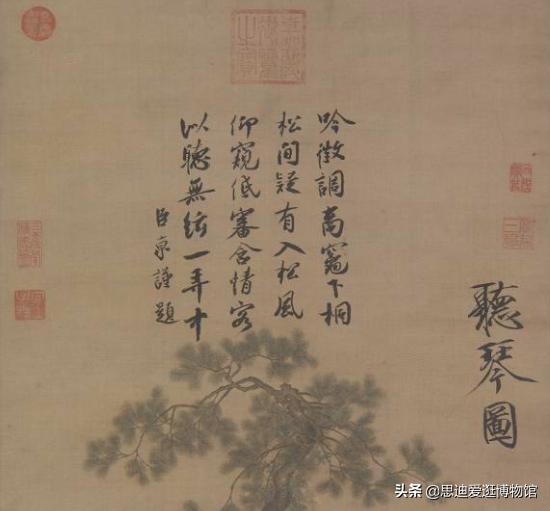 聽琴圖
吟徵調商竈下桐
松間疑有入松風
仰窺低審含情客
以聽無絃一弄中
臣京謹題
头条 @思迪爱逛博物馆